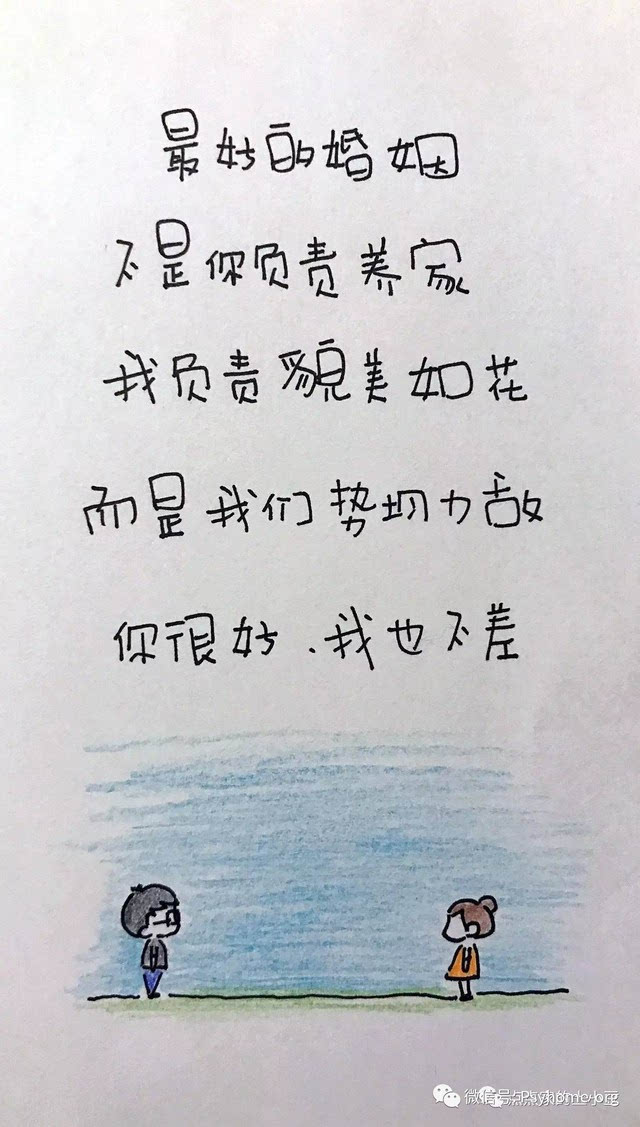 最好的婚姻
不是你负责养家
我负责貌美如花
而是我们势均力敌
你很好.我也不差
微信号: Psyhome-org